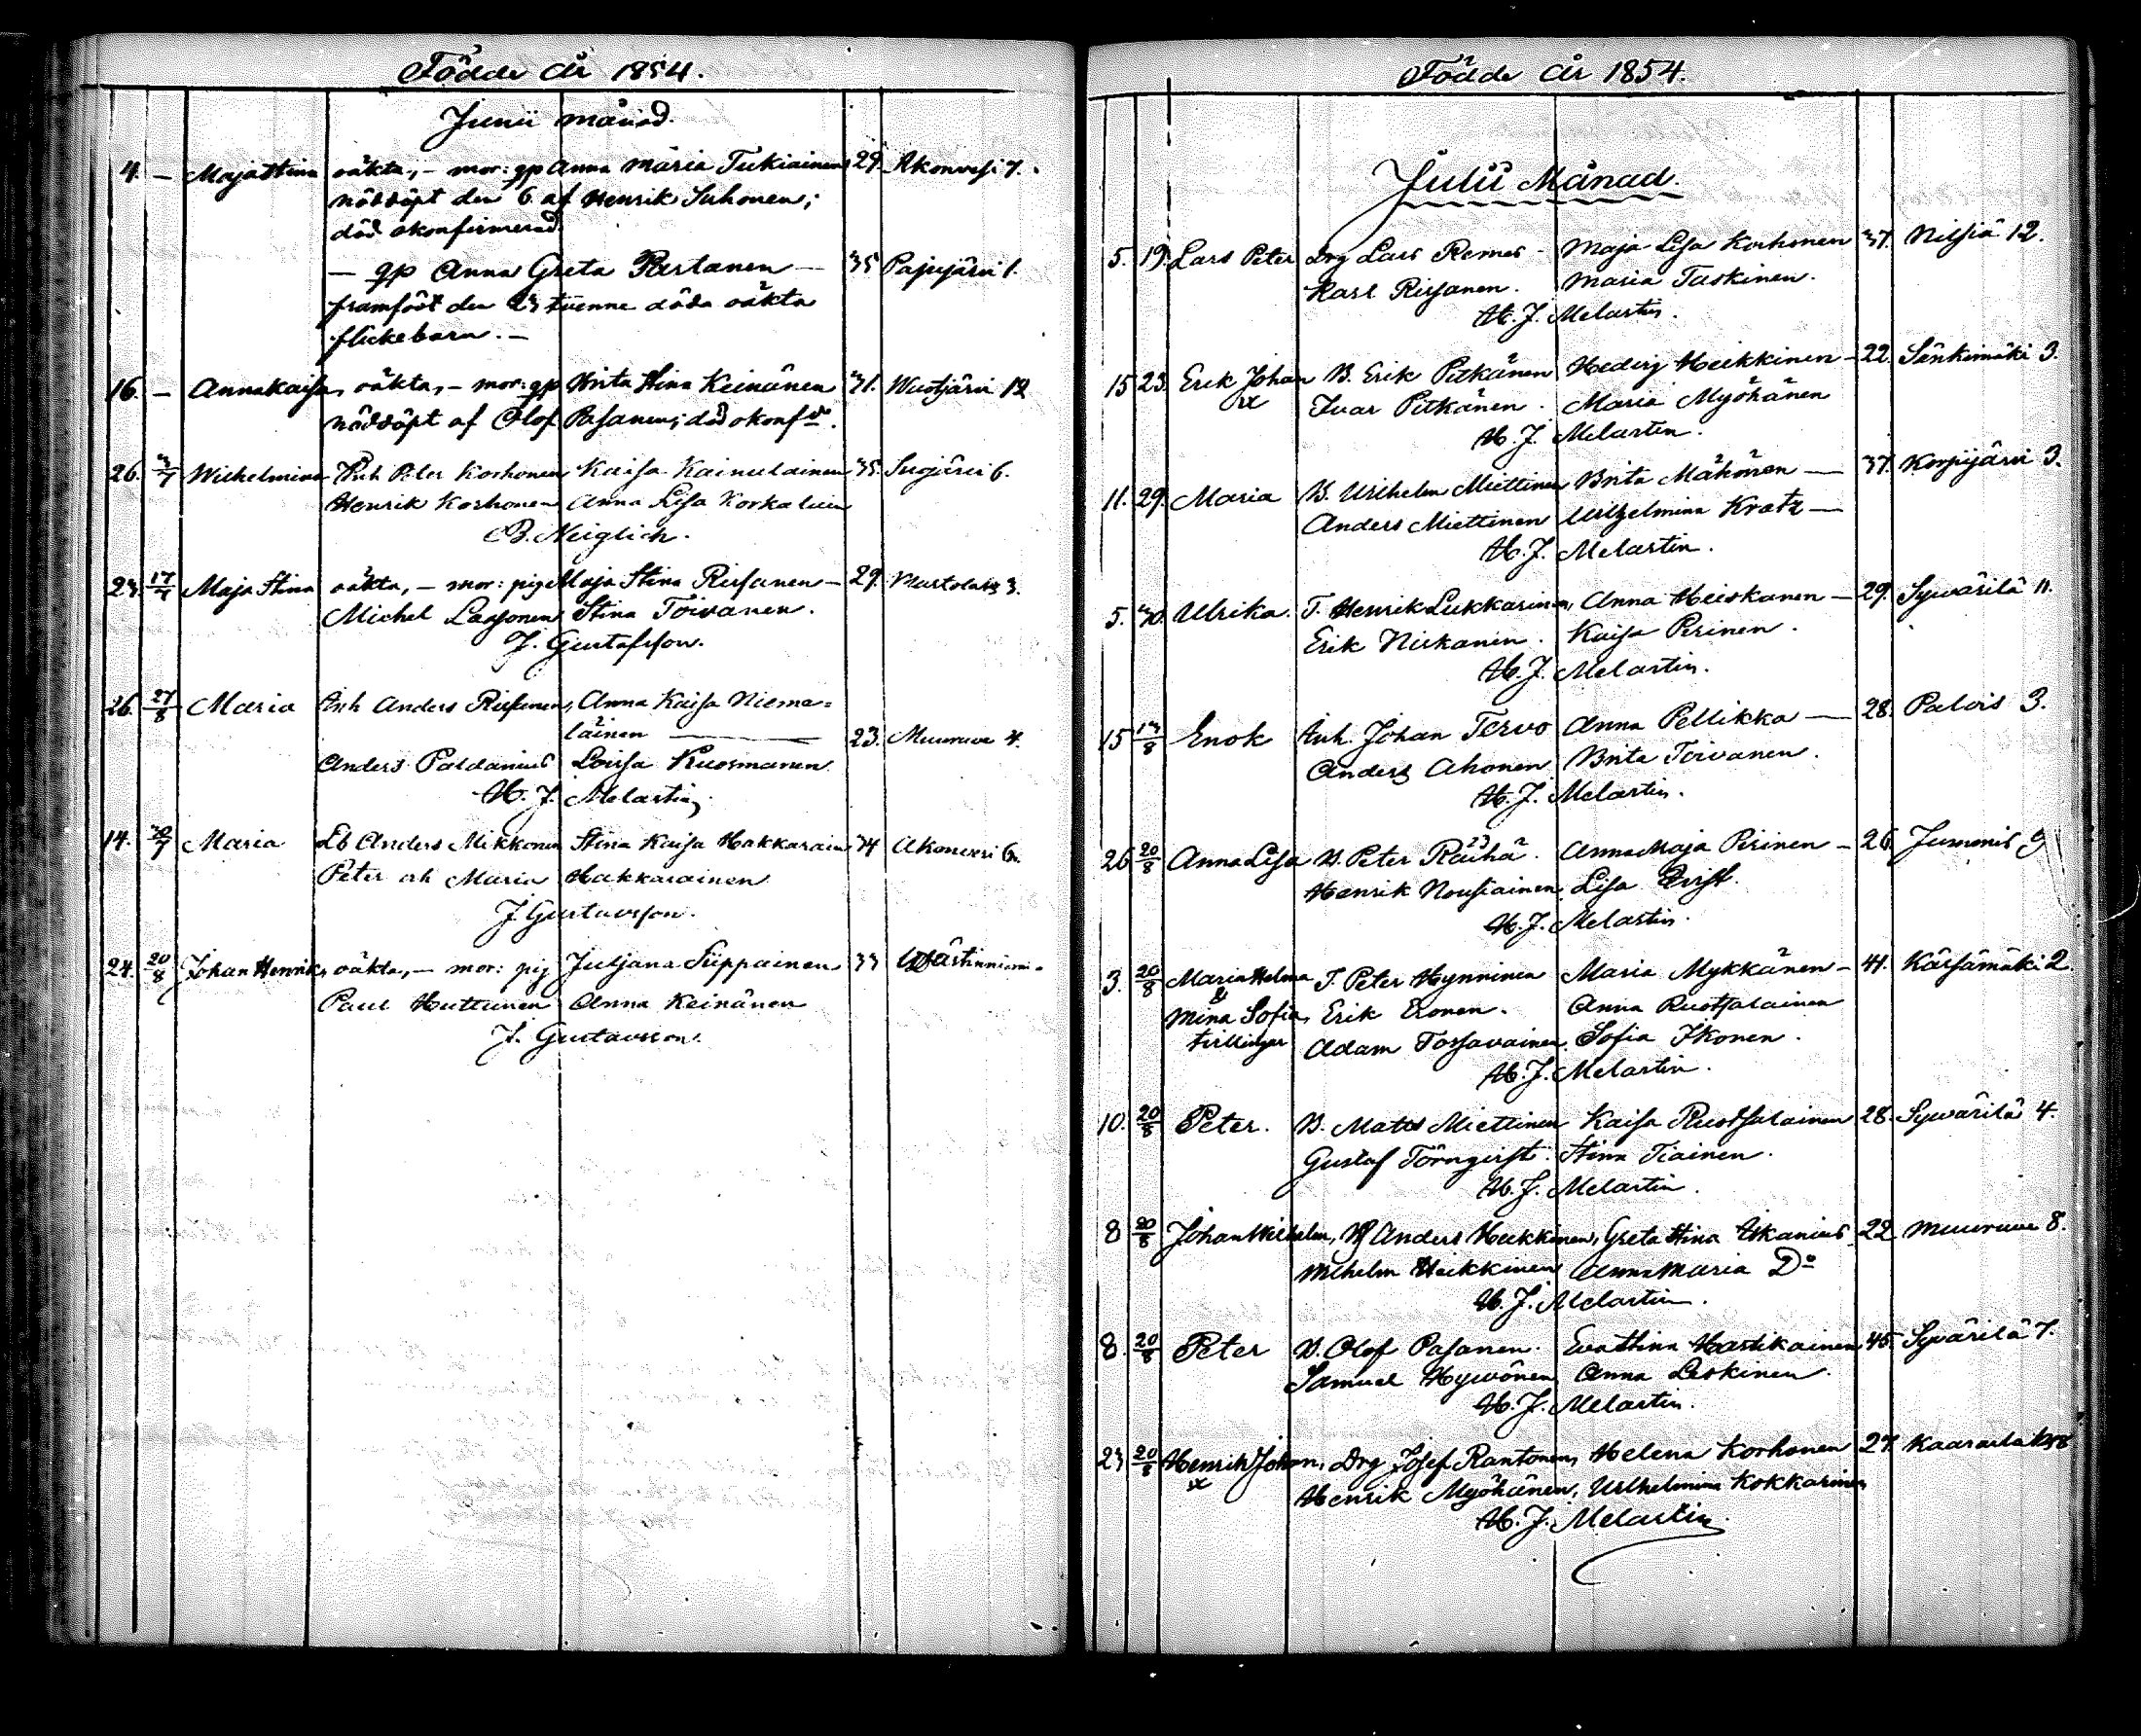 Födde År 1854.
Junii månad.
4. — Maja Stina oäkta, — mor: gp Anna Maria Tukiainen 29. Akonvesi 7.
nöddöpt den 6 af Henrik Suhonen;
död okonfirmerad
— gp Anna Greta Partanen — 35 Pajujärvi 1.
framfödt den 23 tvenne döda oäkta
flickebarn. —
16. — Anna Kaisa, oäkta, — mor: gp Brita Stina Keinänen 31. Wuotjärvi 12
nöddöpt af Olof Pasanen; död okonf
26. 3/7 Wilhelmina Inh Peter Korhonen Kaisa Kainulainen 35. Suojärvi 6.
Henrik Korhonen Anna Lisa
B. Neiglich.
23. 17/7 Maja Stina oäkta, — mor: piga Maja Stina Rissanen — 29. 3.
Michel Laasonen Stina Toivanen.
J. Gustafsson.
26. 27/8 Maria Inh Anders Rissanen, Anna Kaisa Niema=
läinen — 23. Muuruve 4.
Anders Paldanius Lovisa Kuosmanen
H. J. Melartin
14. 30/7 Maria Lb Anders Mikkonen Stina Kaisa Hakkarain 34 Akonvesi 6.
Peter och Maria Hakkarainen
J Gustavsson.
24. 20/8 Johan Henrik, oäkta, — mor: pig Juljana Siippainen 33
Paul Huttunen Anna Keinänen
J. Gustavsson.
Födde År 1854.
Julii Månad.
5. 19. Lars Peter Drg Lars Remes — Maja Lisa Korhonen 37. Nilsiä 12.
Karl Rissanen. Maria Taskinen.
H. J. Melartin.
15 23. Erik Johan B. Erik Pitkänen Hedvig Heikkinen — 22. Sänkimäki 3.
x Ivar Pitkänen. Maria Myöhänen
H. J. Melartin.
11. 29. Maria B. Wilhelm Miettinen Brita Mähönen — 37. Korpijärvi 3.
Anders Miettinen Wilhelmina Kratz —
H. J. Melartin.
5. 30. Ulrika. T. Henrik Lukkarinen, Anna Heiskanen — 29. Sywärilä 11.
Erik Niskanen. Kaisa Pirinen.
H. J. Melartin.
15 13/8 Enok Inh. Johan Tervo Anna Pellikka — 28. Palois 3.
Anders Ahonen Brita Toivanen.
H. J. Melartin.
26 20/8 Anna Lisa B. Peter Räihä. 23 Anna Maja Pirinen — 26 9
Henrik Nousiainen Lisa
H. J. Melartin.
3. 20/8 Maria Helena T. Peter Hynninen Maria Mykkänen — 41. Kärsämäki 2.
&
Mina Sofia, Erik Eronen. Anna Ruotsalainen
tvillingar Adam Tossavainen, Sofia Ikonen.
H. J. Melartin.
10. 20/8 Peter. B. Mats Miettinen Kaisa Ruotsalainen 28. Sywärilä 4.
Gustaf Törnqvist. Stina Tiainen.
H. J. Melartin.
8 20/8 Johan Wilhelm, Anders Heikkinen, Greta Stina 22 Muuruve 8.
Wilhelm Heikkinen Anna Maria Do
H. J. Melartin.
8. 20/8 Peter B. Olof Pasanen. Eva Stina Hartikainen 45. Sywärilä 7.
Samuel Hyvönen Anna Leskinen.
H. J. Melartin.
23 20/8 Henrik Johan, Drg Josef Rantonen, Helena Korhonen 27. Kaaraslahti 8
x Henrik Myöhänen, Wilhelmina Kokkarinen
H. J. Melartin.